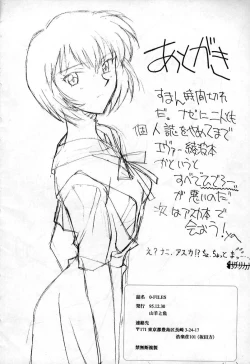 あとがき
すまん時間切れ
だ。ナゼにニトくも
個人誌をやめてまで
エヴァー
かというと
すべて
が悪いのだ。
次はアスカ本で
会おう!
え?ナニ、アスカ!?
題名 0-FILES
発行 95.12.30
山羊と魚
連絡先
〒171 東京都豊島区長崎3-24-17
倍楽荘101(坂田方)
禁無断複製